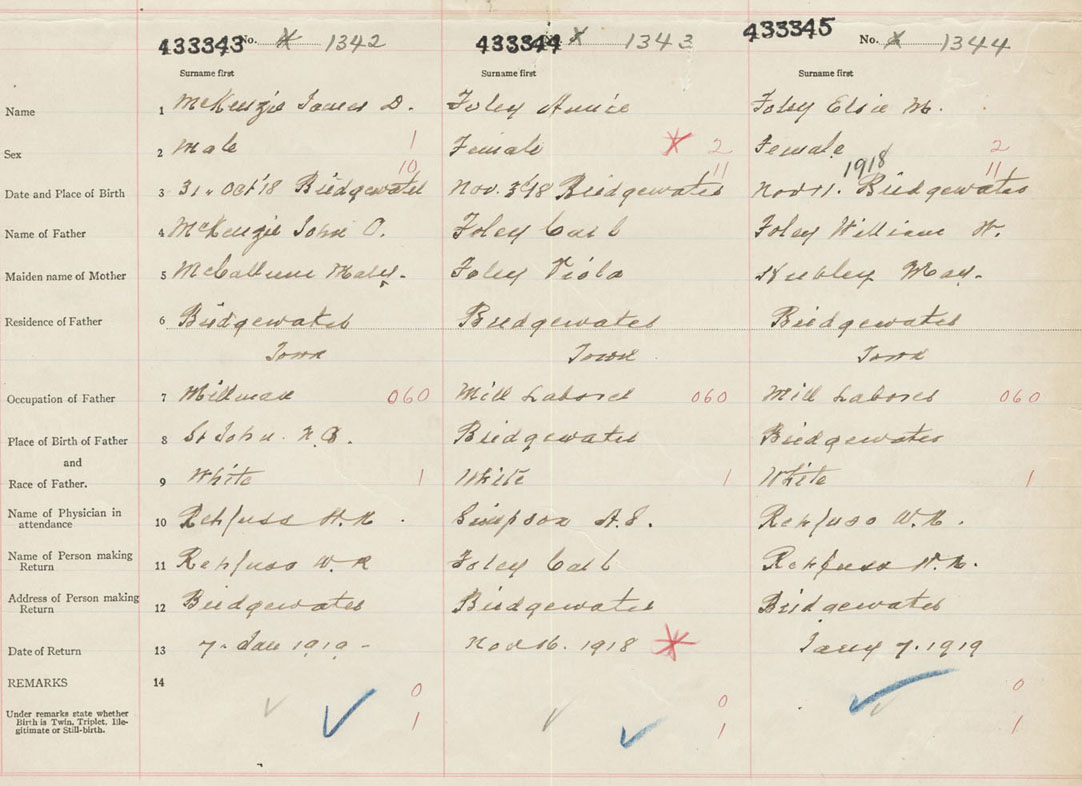 433343 No. 1342 433344 1343 433345 No. 1344
Surname first Surname first Surname first
Name 1 McKenzie James D. Foley Annie Foley Elsie M.
Sex 2 Male 1 Female 2 Female 2
10 11 1918 11
Date and Place of Birth 3 31 Oct '18 Bridgewater Nov. 3rd 18 Bridgewater Nov 11. Bridgewater
Name of Father 4 McKenzie John O. Foley Carl Foley William W.
Maiden name of Mother 5 McCallum Mary. Foley Viola Hubley May.
Residence of Father 6 Bridgewater Bridgewater Bridgewater
Town Town Town
Occupation of Father 7 Millman 060 Mill Laborer 060 Mill Laborer 060
Place of Birth of Father 8 St John. N.B. Bridgewater Bridgewater
and
Race of Father. 9 White 1 White 1 White 1
Name of Physician in
attendance 10 Rehfuss Simpson A.S. Rehfuss W.N.
Name of Person making
Return 11 Rehfuss Foley Carl Rehfuss W.N.
Address of Person making
Return 12 Bridgewater Bridgewater Bridgewater
Date of Return 13 7 Jan 1919 Nov 16. 1918 Jany 7. 1919
REMARKS 14
0 0 0
Under remarks state whether
Birth is Twin, Triplet, Ille-
gitimate or Still-birth.
1 1 1